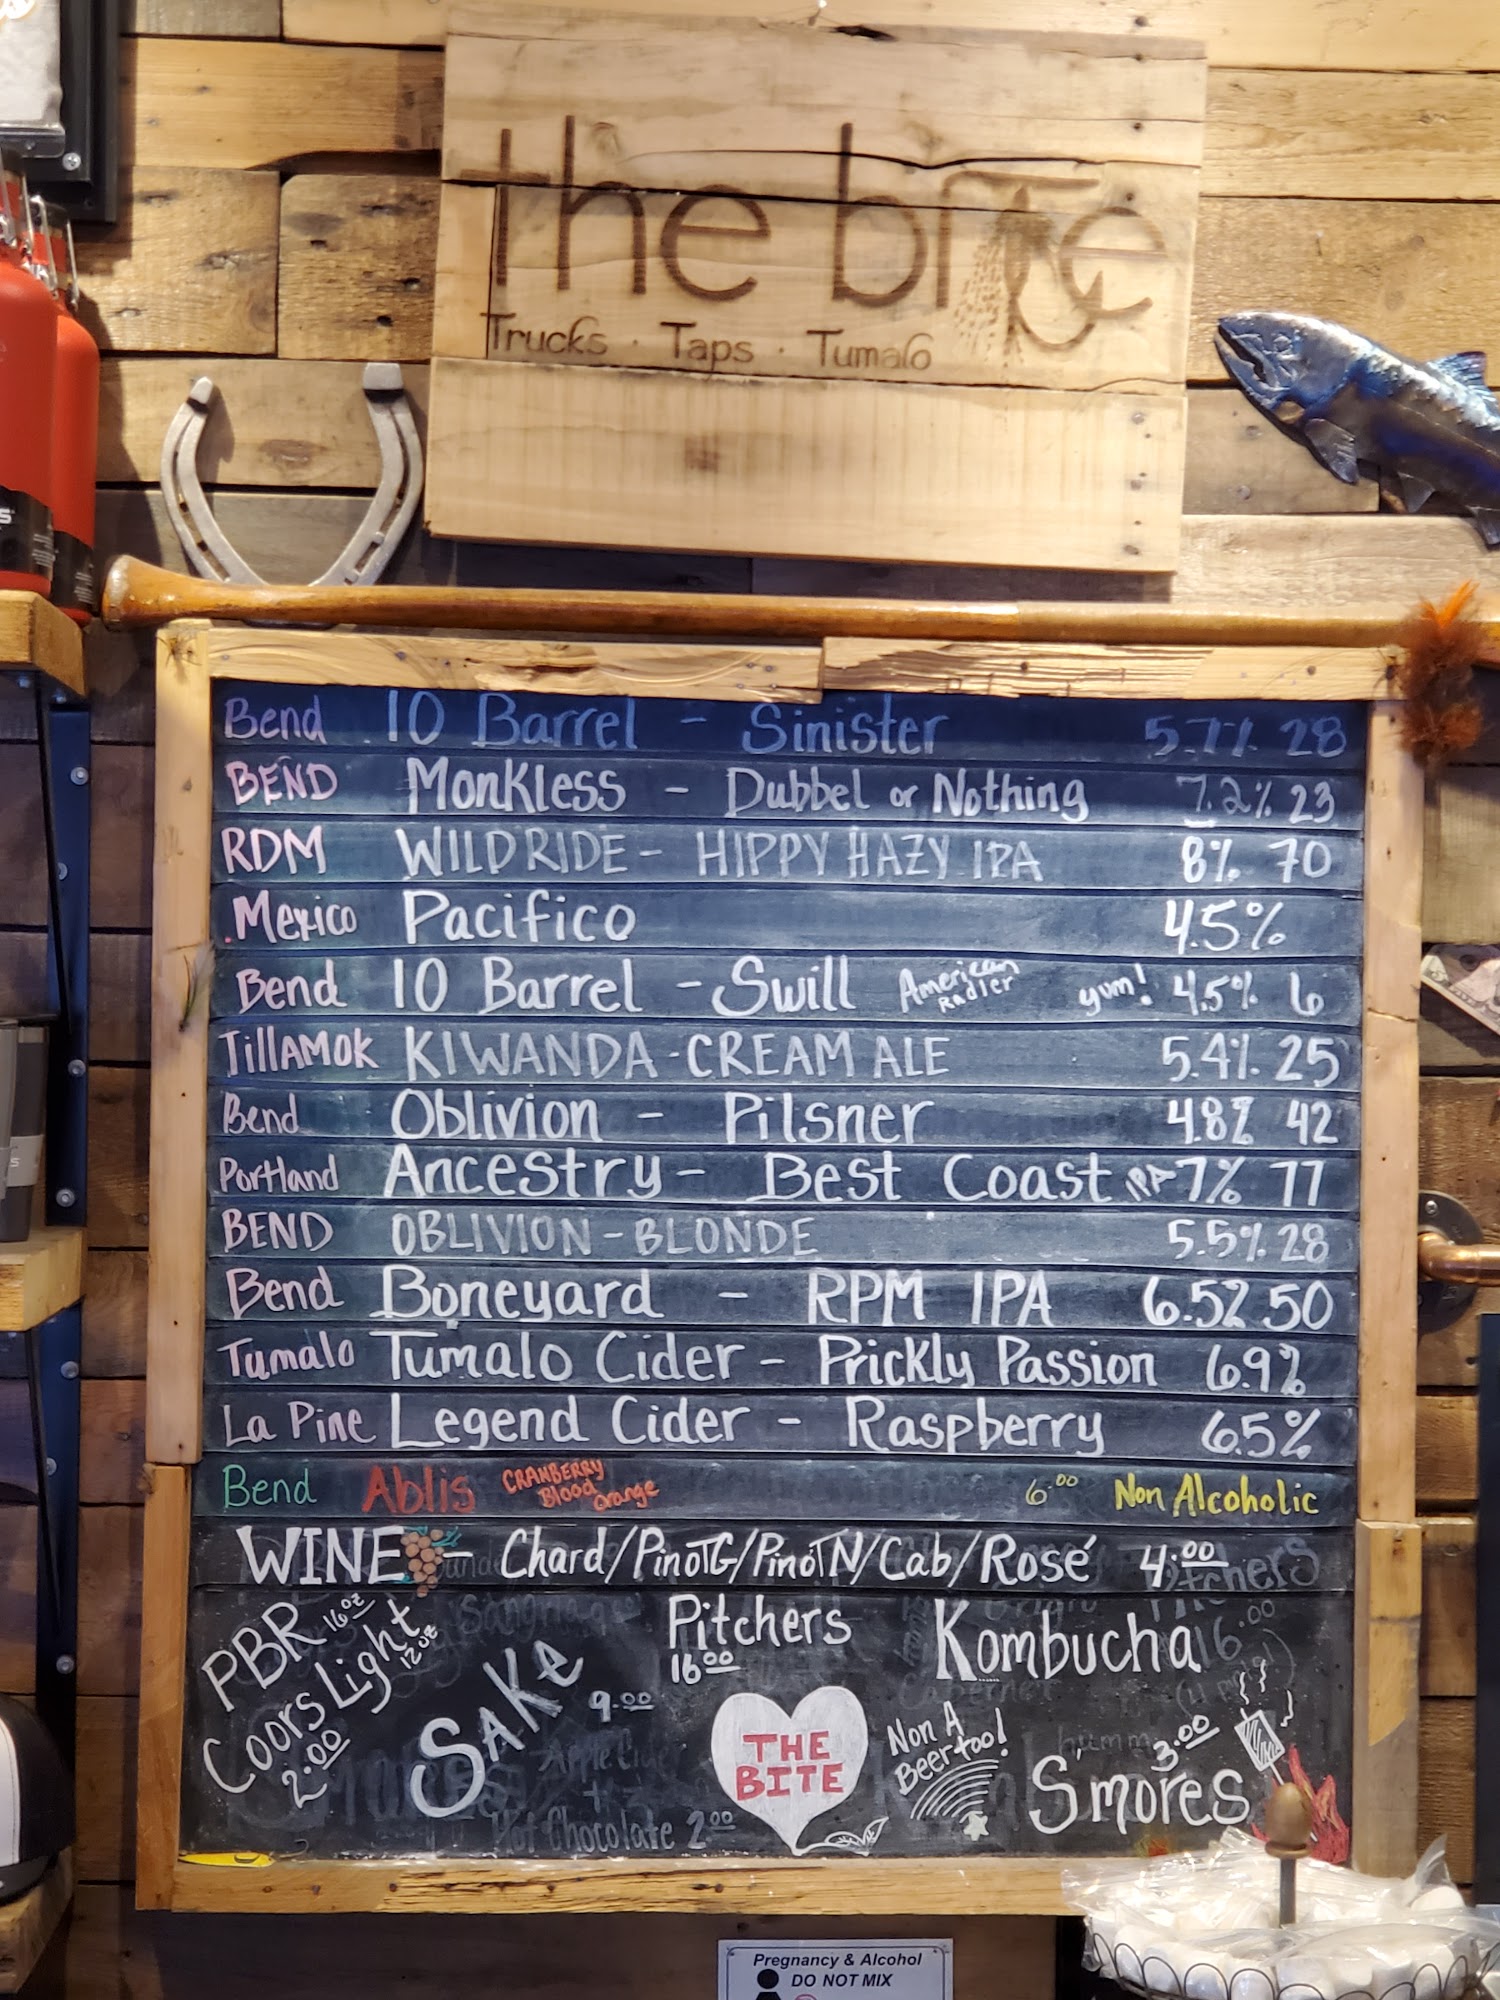 the bite
Trucks · Taps · Tumalo
Bend 10 Barrel - Sinister 5.7% 28
BEND Monkless - Dubbel or Nothing 7.2% 23
RDM WILD RIDE - HIPPY HAZY IPA 8% 70
Mexico Pacifico 4.5%
Bend 10 Barrel - Swill American Radler yum! 4.5% 6
TillAMOK KIWANDA - CREAM ALE 5.4% 25
Bend Oblivion - Pilsner 4.8% 42
Portland Ancestry - Best Coast IPA 7% 77
BEND OBLIVION - BLONDE 5.5% 28
Bend Boneyard - RPM IPA 6.5% 50
Tumalo Tumalo Cider - Prickly Passion 6.9%
La Pine Legend Cider - Raspberry 6.5%
Bend Ablis CRANBERRY Blood Orange 6.00 Non Alcoholic
WINE - Chard/PinotG/PinotN/Cab/Rosé 4.00
PBR 16oz
Coors Light 12oz
2.00
SAKe
9.00
Pitchers
16.00
Kombucha
THE
BITE
Non A
Beer too!
3.00
S'mores
Hot Chocolate 2.00
Pregnancy & Alcohol
DO NOT MIX